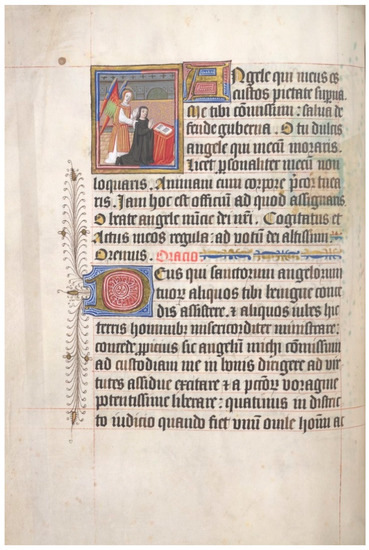 Angele qui meus es
custos pietate supͥna.
Me tibi cōmissum: salua de
fende guberna. O tu dulcis
angele qui mecū moraris.
licet psonaliter mecū non
loquaris. Animam cum corpore pcor tuea
ris. Iam hoc est officiū ad quod assignaris
O beate angele nūcie dei nrī. Cogitatus et
Actus meos regula: ad votū dei altissimi.
Oremus. Oratio.
Deus qui sanctorum angelorum
tuoꝝ aliquos tibi benigne conce
dis assistere. & aliquos iules hic
terris hominibꝫ misericorditer ministrare:
concede ppicius sic angelū michi cōmissum
ad custodiam me in bonis dirigere ad vir
tutes assidue excitare & a pctoꝝ voragine
potentissime liberare: quatinus in distric
to iudicio quando fiet vnū ouile hoīm ac